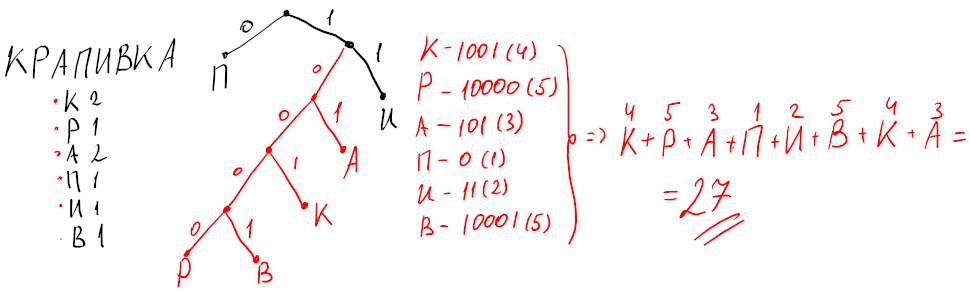 КРАПИВКА
К 2
Р 1
А 2
П 1
И 1
В 1
0 1
П
0 1
И
0 1
А
0 1
К
0 1
Р В
К - 1001 (4)
Р - 10000 (5)
А - 101 (3)
П - 0 (1)
И - 11 (2)
В - 10001 (5)
4 5 3 1 2 5 4 3
=> К + Р + А + П + И + В + К + А =
= 27